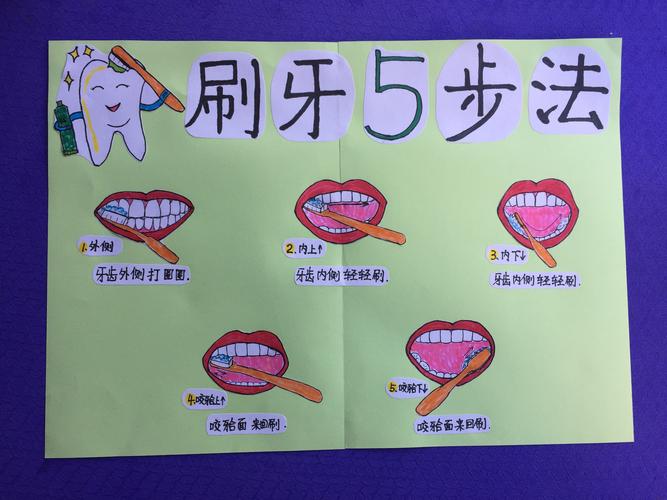 刷牙5步法
1.外侧
牙齿外侧打圈圈.
2.内上↑
牙齿内侧轻轻刷.
3.内下↓
牙齿内侧轻轻刷.
4.咬𬌗上↑
咬𬌗面来回刷.
5.咬𬌗下↓
咬𬌗面来回刷.